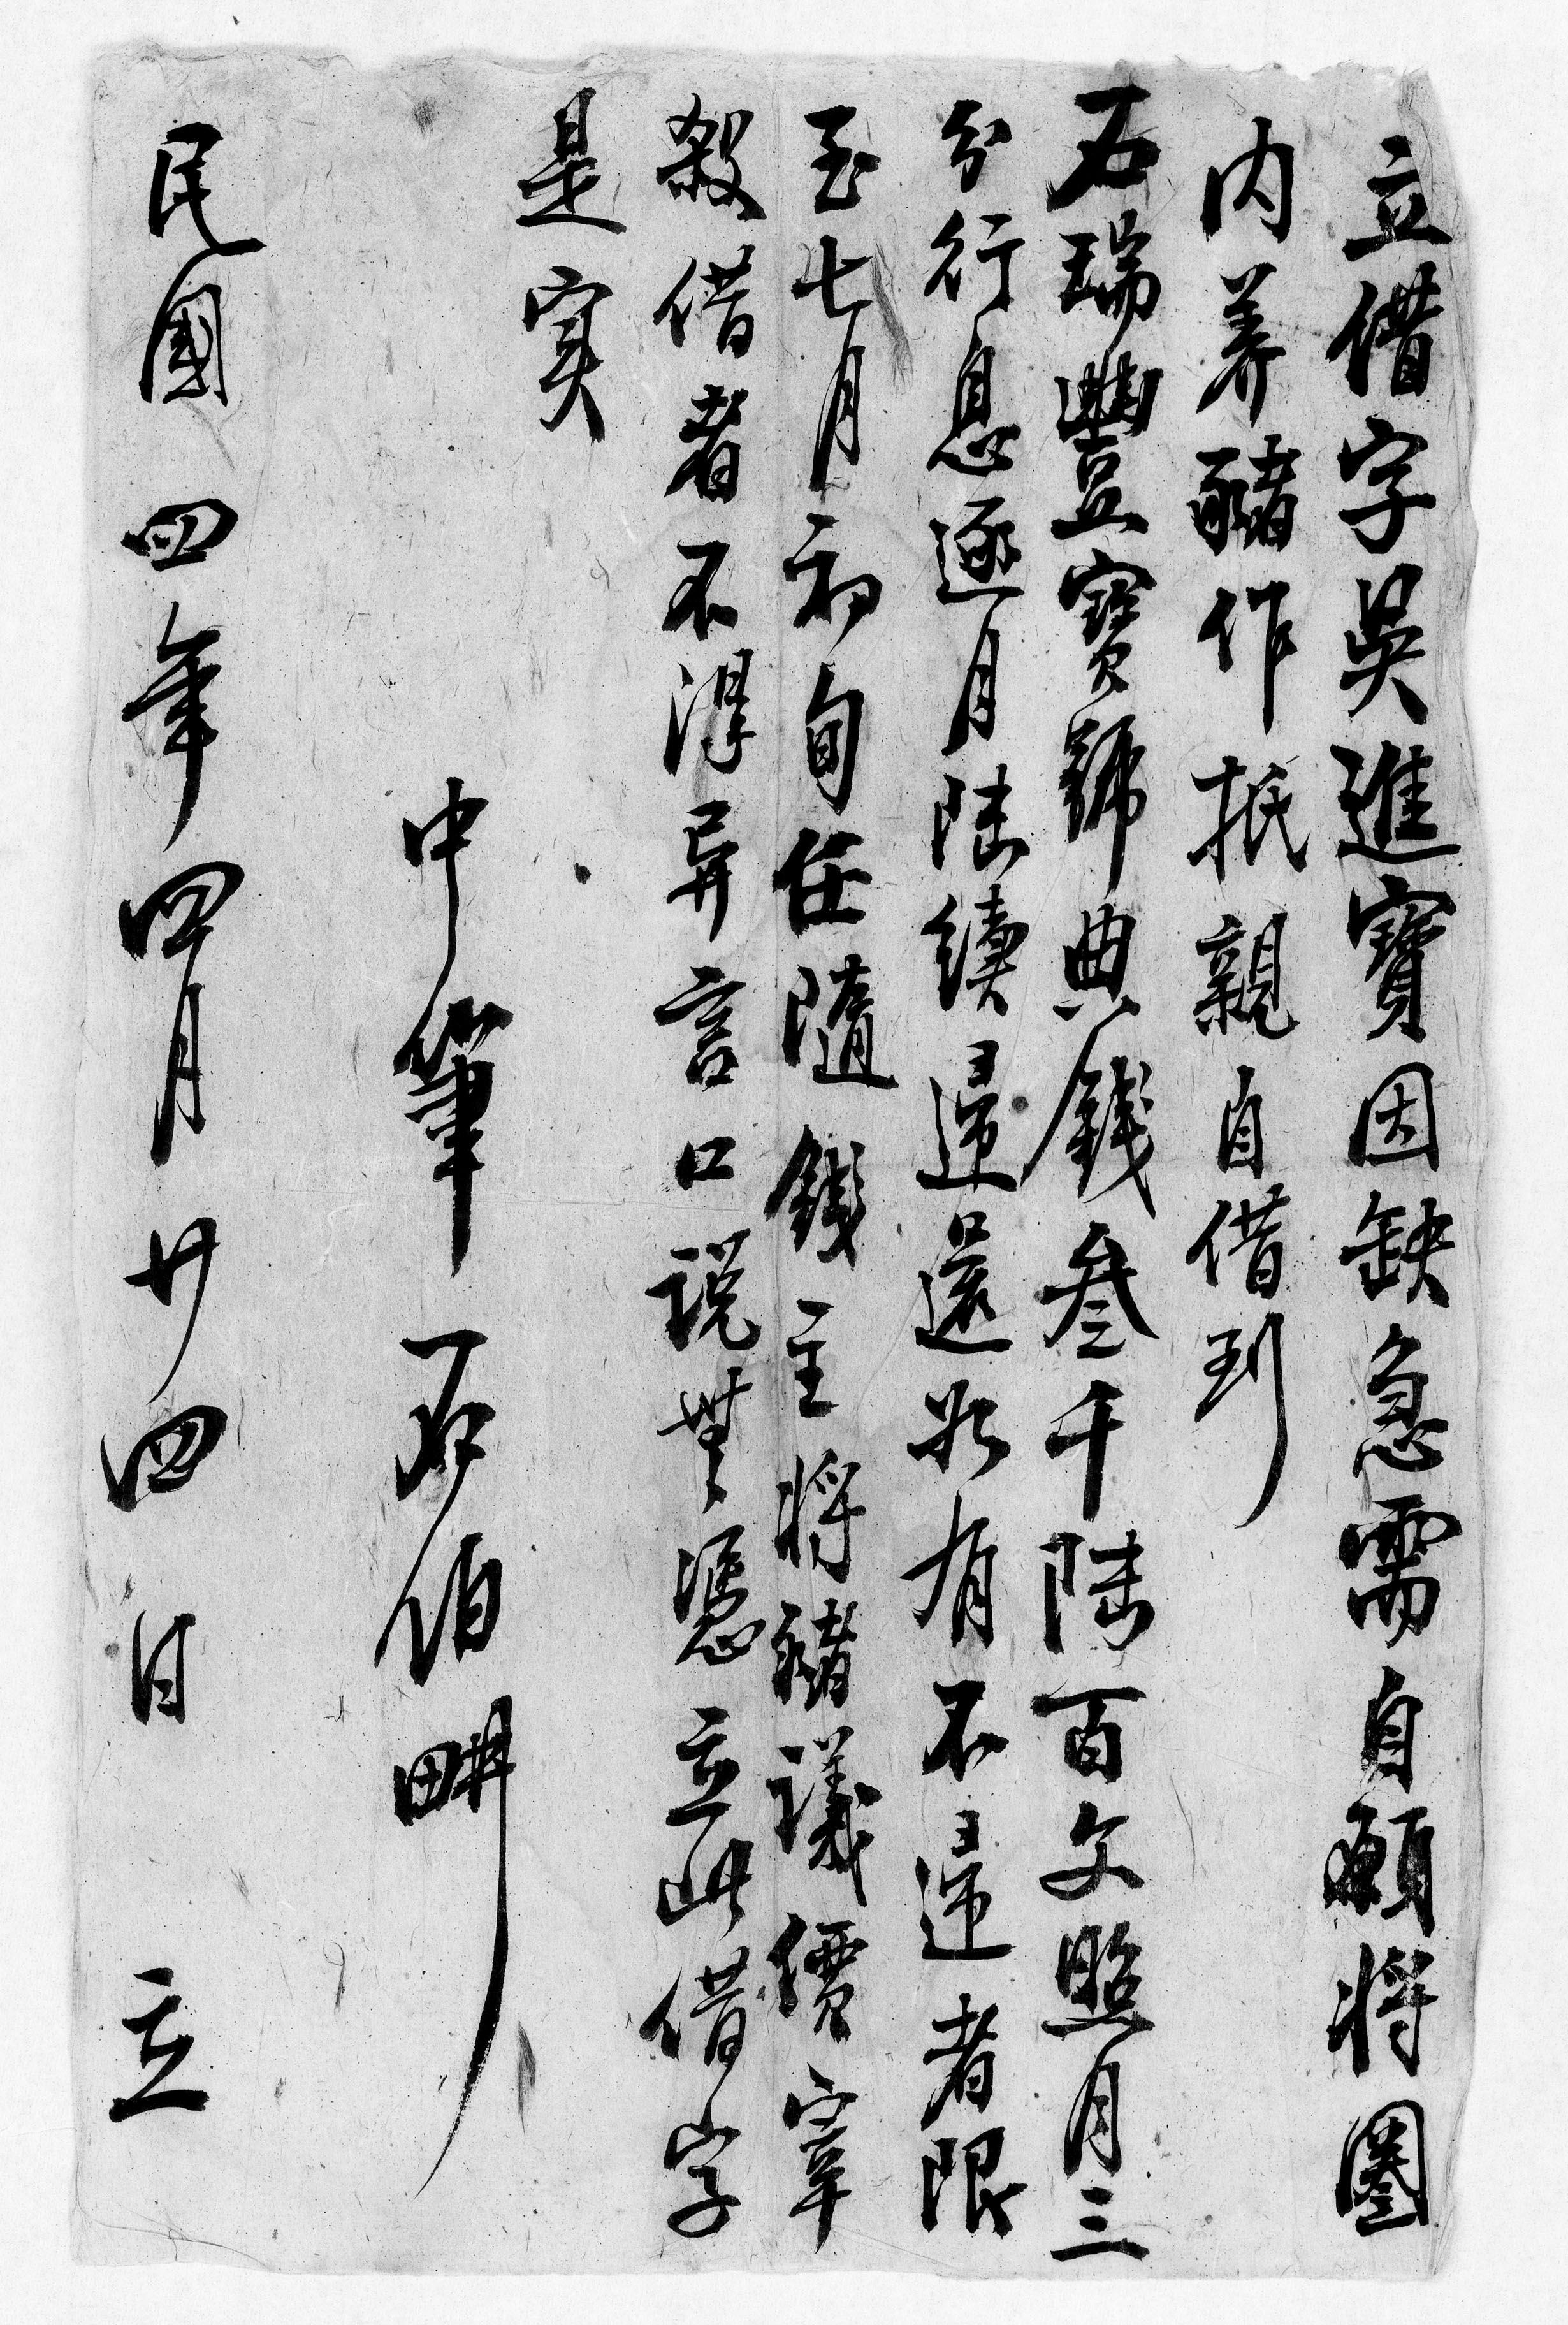 立借字吳進寶因缺急需自願將圈
内养豬作抵親自借到
石瑞豐寶號典錢叁千陆百文照月三
分行息逐月陆續歸還若有不歸者限
至七月初旬任隨錢主將豬議價宰
殺借者不得异言口説無憑立此借字
是实
中筆石伯畊
民國四年四月廿四日立